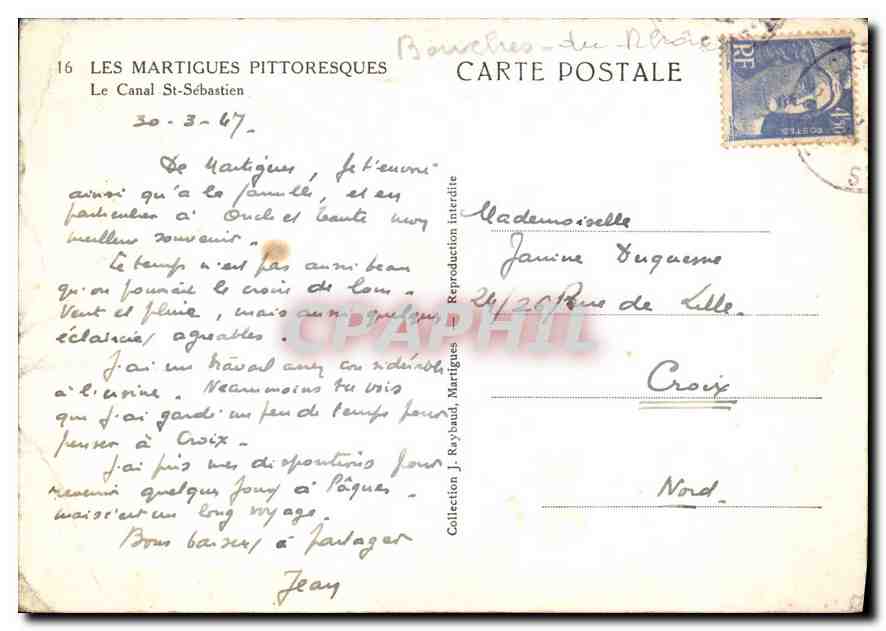 Bouches-du-Rhône
16 LES MARTIGUES PITTORESQUES
Le Canal St-Sébastien
CARTE POSTALE
RF
POSTES
4f50
30-3-47.
De Martigues, je t'envoie
ainsi qu'à la famille, et en
particulier à Oncle et tante mon
meilleur souvenir.
Le temps n'est pas aussi beau
qu'on pourrait le croire de loin.
Vent et pluie, mais aussi quelques
éclaircies agréables.
J'ai un travail assez considérable
à l'usine. Néanmoins tu vois
que j'ai gardé un peu de temps pour
penser à Croix.
J'ai pris mes dispositions pour
revenir quelques jours à Pâques.
mais c'est un long voyage.
Bons baisers à partager
Jean
Collection J. Raybaud, Martigues — Reproduction interdite
Mademoiselle
Janine Duquesne
24/26 Rue de Lille.
Croix
Nord.
CPAPHIL